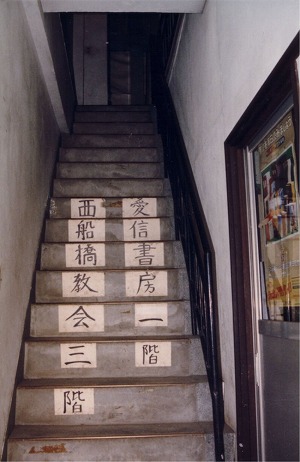 愛信書房一階
西船橋教会三階